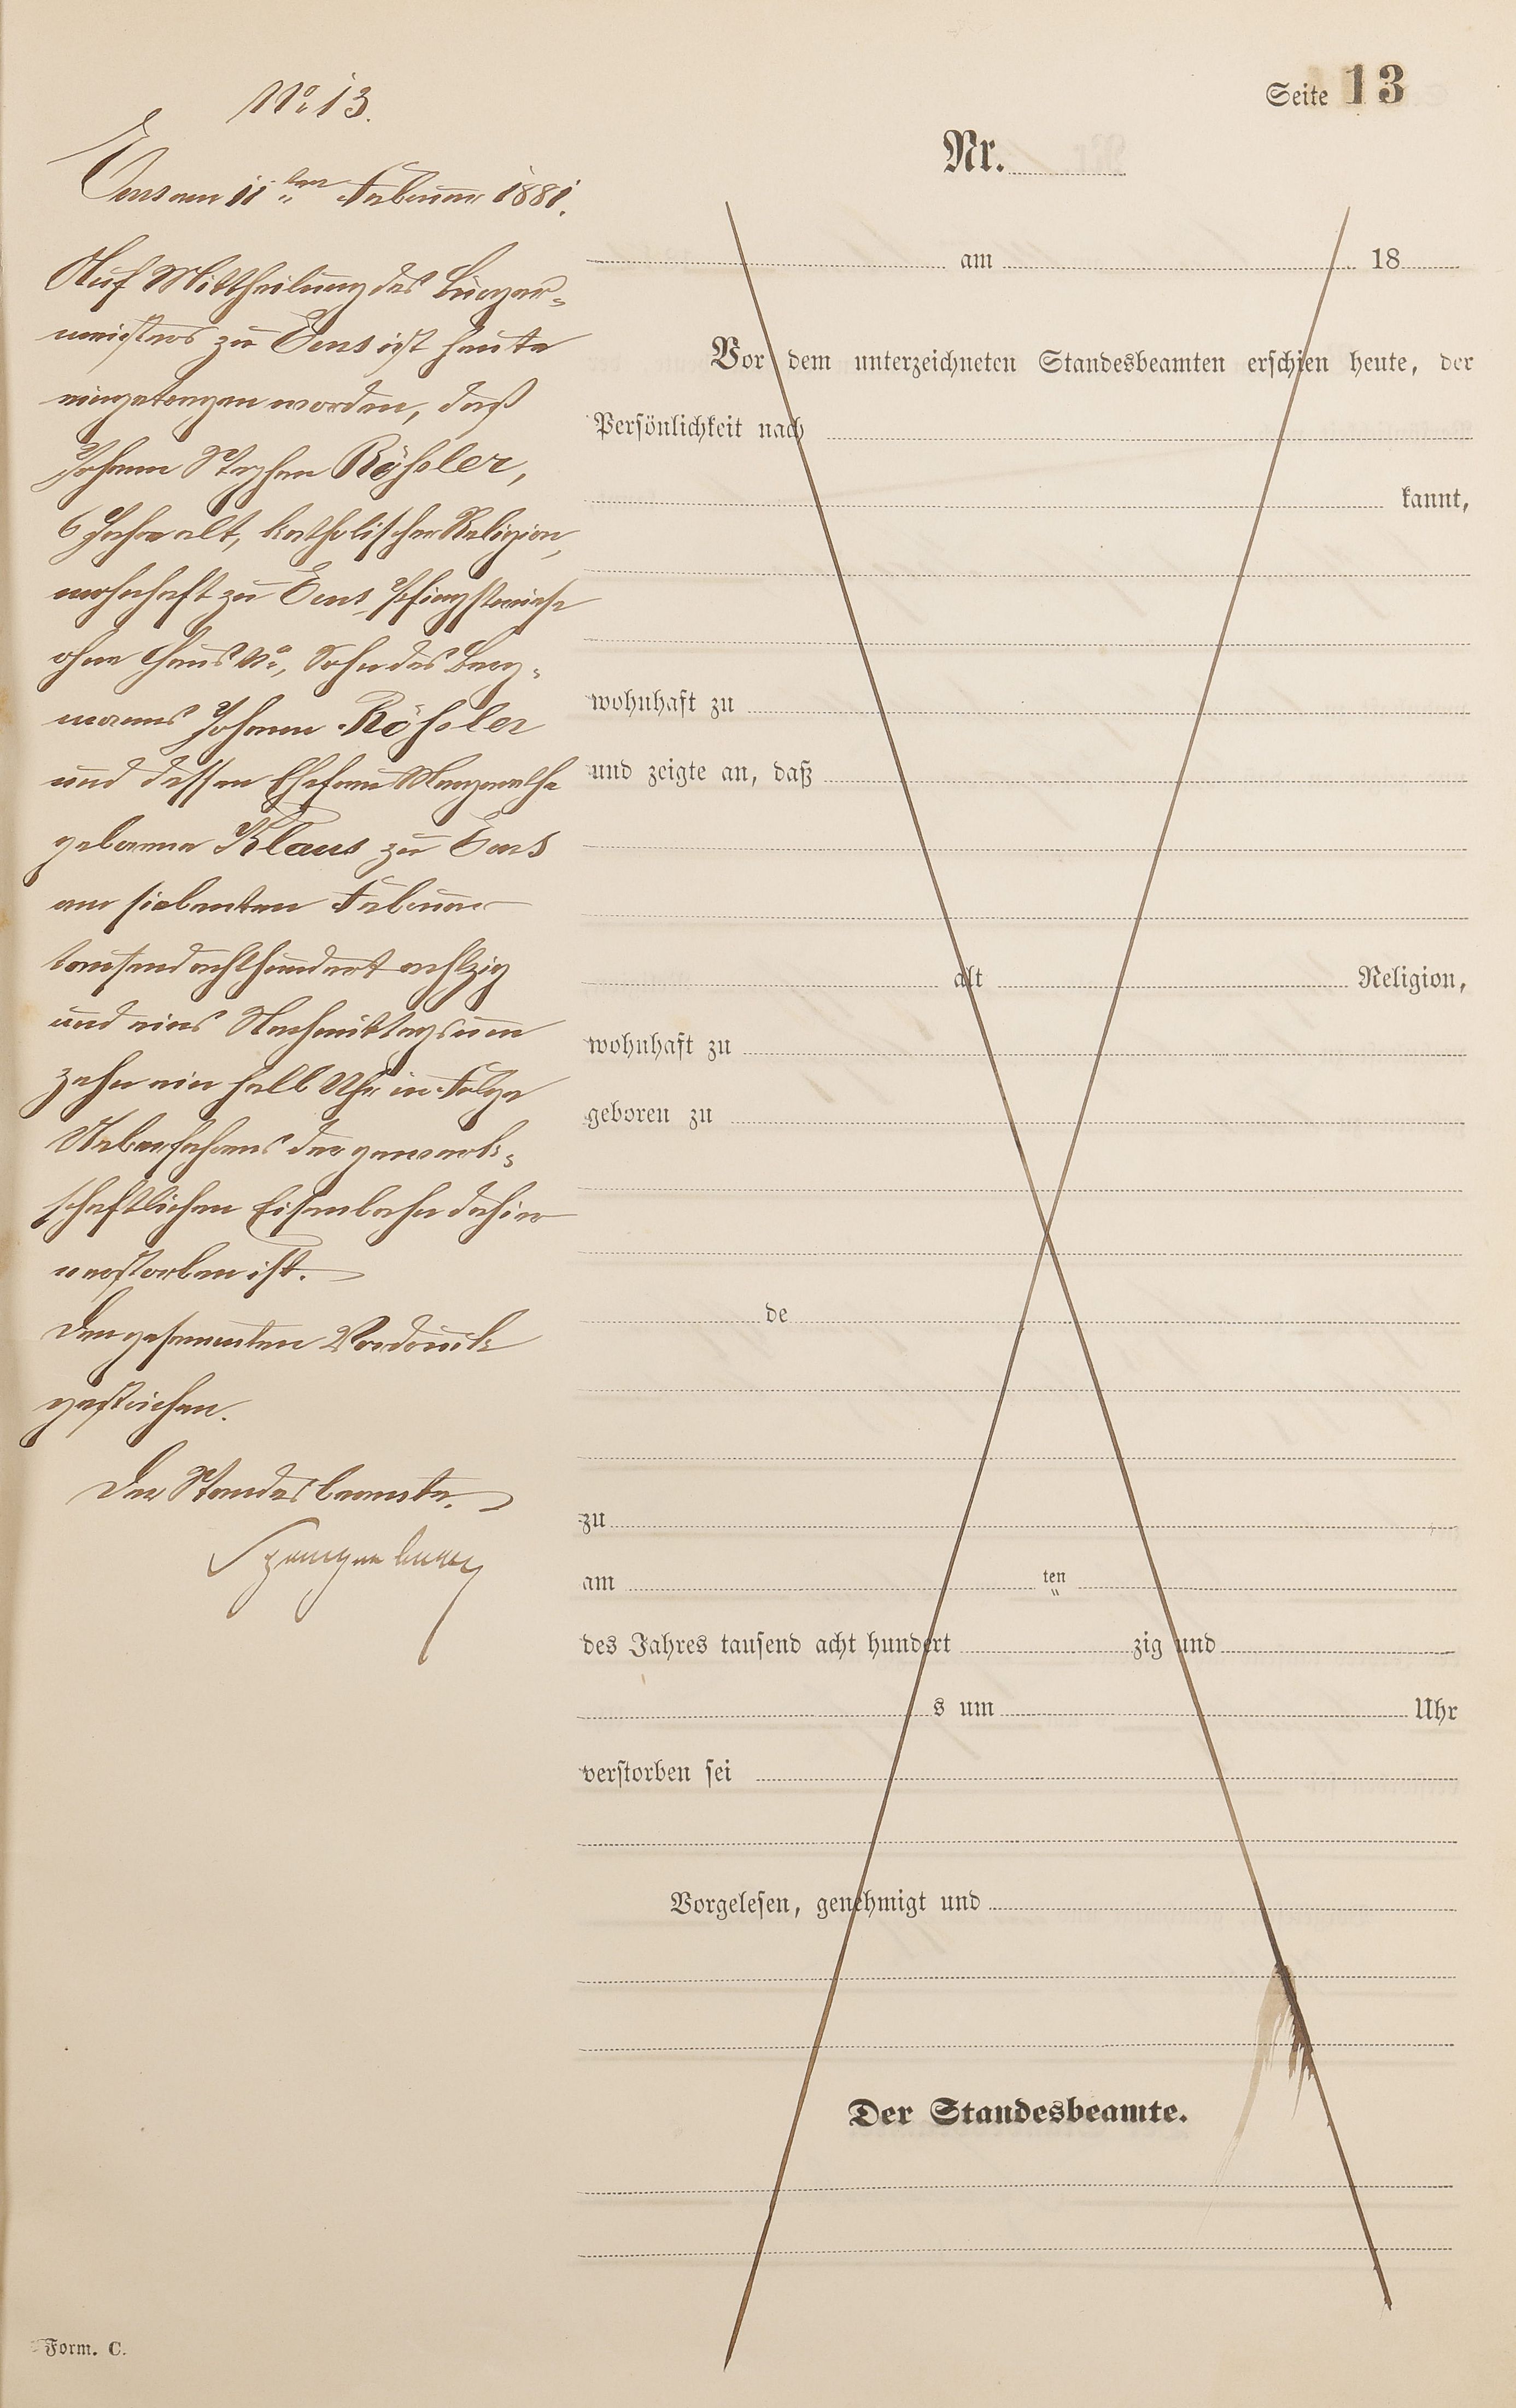 Nº 13.
Ems am 11ten Februar 1881.
Auf Mittheilung des Bürger=
meisters zu Ems ist heute
eingetragen worden, daß
Johann Stephan Röhsler,
6 Jahre alt, katholischer Religion,
wohnhaft zu Ems, Pfingstwiese
ohne Haus Nº, Sohn des Berg=
manns Johann Röhsler
und dessen Ehefrau Margarethe
geborene Klaus zu Ems
am siebenten Februar
tausend achthundert achtzig
und eins Nachmittags um
zehn ein halb Uhr in Folge
Ueberfahrens der gewerk=
schaftlichen Eisenbahn dahier
verstorben ist.
Den gesammten Vordruck
gestrichen.
Der Standesbeamte.
Spangenberg
Seite 13
Nr.
am 18
Vor dem unterzeichneten Standesbeamten erschien heute, der
Persönlichkeit nach
kannt,
wohnhaft zu
und zeigte an, daß
alt Religion,
wohnhaft zu
geboren zu
de
zu
am ten
des Jahres tausend acht hundert zig und
s um Uhr
verstorben sei
Vorgelesen, genehmigt und
Der Standesbeamte.
Form. C.